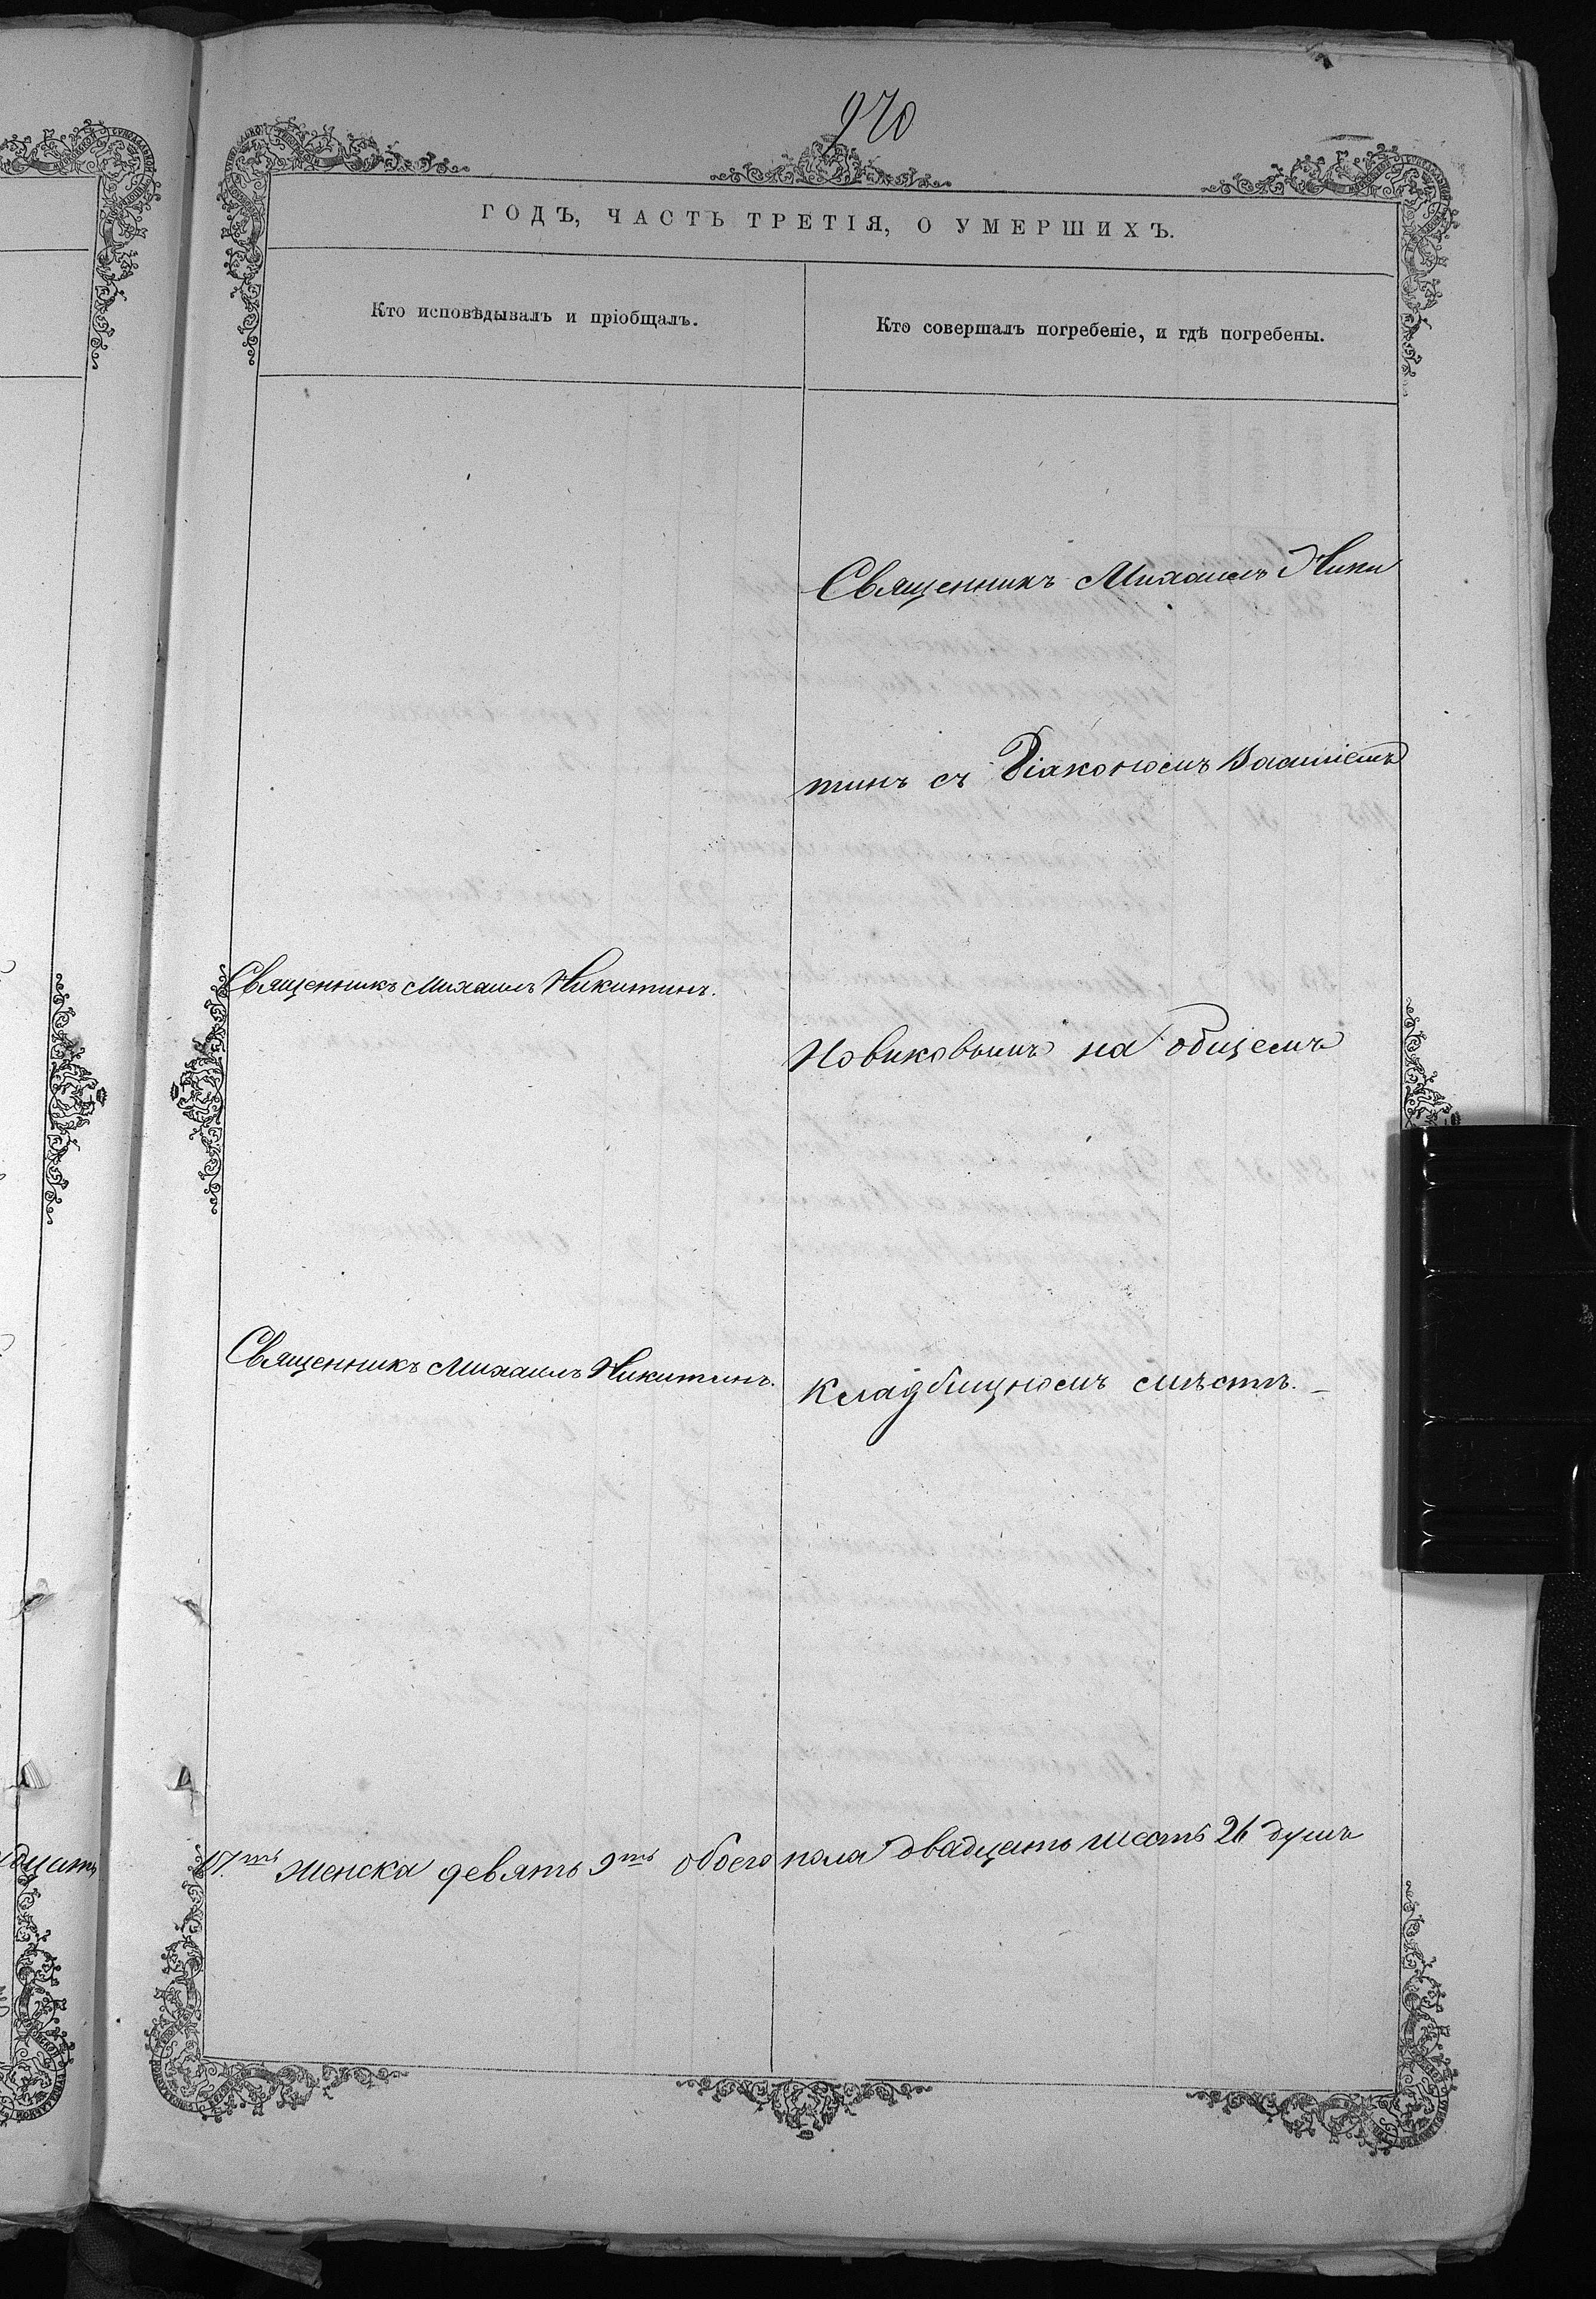 970
ГОДЪ, ЧАСТЬ ТРЕТІЯ, О УМЕРШИХЪ.
Кто исповѣдывалъ и пріобщалъ.
Кто совершалъ погребеніе, и гдѣ погребены.
Священникъ Михаилъ Ники
тинъ съ Діакономъ Васи­ліемъ
Священникъ Михаилъ Никитинъ.
Новиковымъ на общемъ
Священникъ Михаилъ Никитинъ.
кладбищномъ мѣстѣ. –
17.ть женска девять 9ть обоего пола двадцать шесть 26 душъ